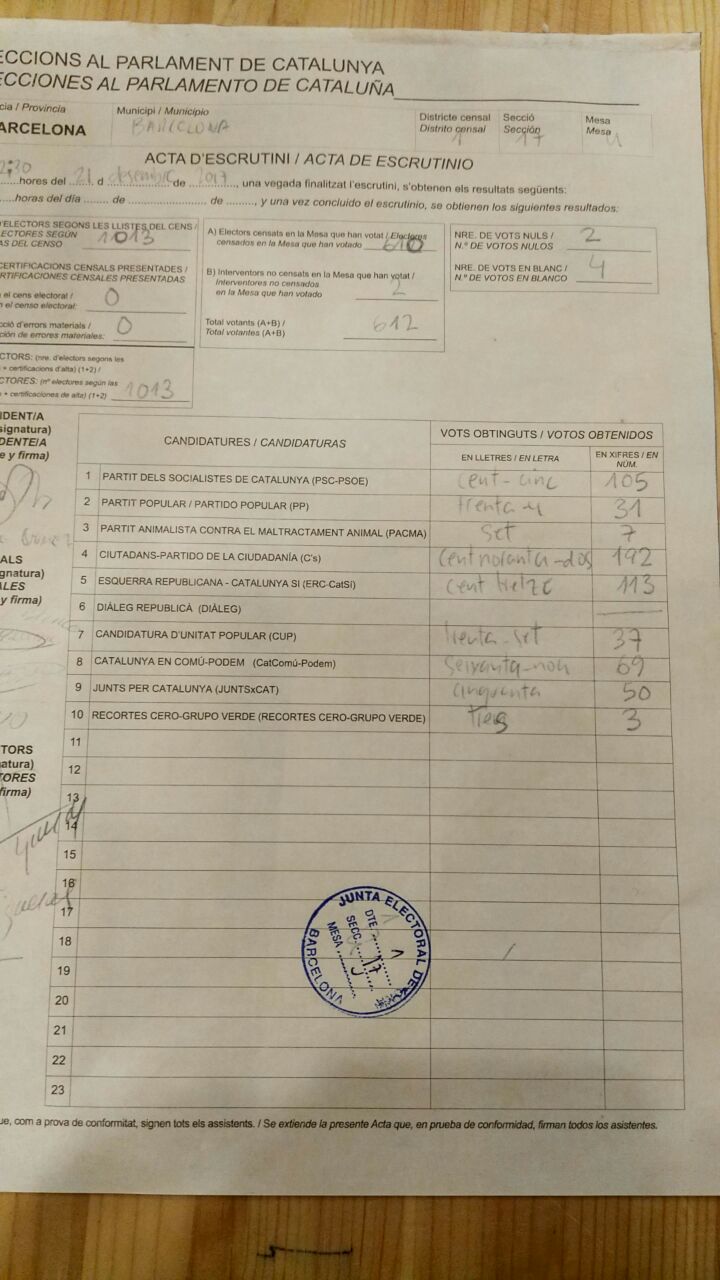 ECCIONS AL PARLAMENT DE CATALUNYA
ECCIONES AL PARLAMENTO DE CATALUÑA
cia / Provincia
ARCELONA
Municipi / Municipio
BARCELONA
Districte censal
Distrito censal
1
Secció
Sección
17
Mesa
Mesa
U
ACTA D'ESCRUTINI / ACTA DE ESCRUTINIO
2:30 hores del 21 d desembre de 2017, una vegada finalitzat l'escrutini, s'obtenen els resultats següents:
horas del día de de , y una vez concluido el escrutinio, se obtienen los siguientes resultados:
'ELECTORS SEGONS LES LLISTES DEL CENS /
ECTORES SEGÚN
AS DEL CENSO 1013
CERTIFICACIONS CENSALS PRESENTADES /
RTIFICACIONES CENSALES PRESENTADAS
n el cens electoral /
n el censo electoral: 0
cció d'errors materials /
ción de errores materiales: 0
CTORS: (nre. d'electors segons les
+ certificacions d'alta) (1+2) /
CTORES: (nº electores según las
+ certificaciones de alta) (1+2) 1013
A) Electors censats en la Mesa que han votat / Electores
censados en la Mesa que han votado 610
B) Interventors no censats en la Mesa que han votat /
Interventores no censados
en la Mesa que han votado 2
Total votants (A+B) /
Total votantes (A+B) 612
NRE. DE VOTS NULS /
N.º DE VOTOS NULOS 2
NRE. DE VOTS EN BLANC /
N.º DE VOTOS EN BLANCO 4
IDENT/A
signatura)
DENTE/A
e y firma)
ALS
gnatura)
ALES
y firma)
TORS
atura)
TORES
firma)
CANDIDATURES / CANDIDATURAS
VOTS OBTINGUTS / VOTOS OBTENIDOS
EN LLETRES / EN LETRA
EN XIFRES / EN NÚM.
1 PARTIT DELS SOCIALISTES DE CATALUNYA (PSC-PSOE) cent-cinc 105
2 PARTIT POPULAR / PARTIDO POPULAR (PP) trenta-u 31
3 PARTIT ANIMALISTA CONTRA EL MALTRACTAMENT ANIMAL (PACMA) set 7
4 CIUTADANS-PARTIDO DE LA CIUDADANÍA (C's) cent noranta-dos 192
5 ESQUERRA REPUBLICANA - CATALUNYA SI (ERC-CatSí) cent tretze 113
6 DIÀLEG REPUBLICÀ (DIÀLEG)
7 CANDIDATURA D'UNITAT POPULAR (CUP) trenta-set 37
8 CATALUNYA EN COMÚ-PODEM (CatComú-Podem) seixanta-nou 69
9 JUNTS PER CATALUNYA (JUNTSxCAT) cinquanta 50
10 RECORTES CERO-GRUPO VERDE (RECORTES CERO-GRUPO VERDE) 3
11
12
13
14
15
16
17
18
19
20
21
22
23
JUNTA ELECTORAL DE
BARCELONA
DTE. 1
SECC. 17
MESA U
ue, com a prova de conformitat, signen tots els assistents. / Se extiende la presente Acta que, en prueba de conformidad, firman todos los asistentes.